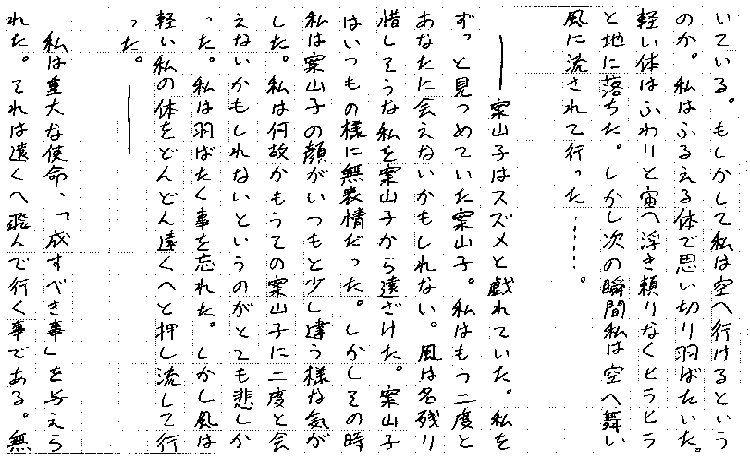 いている。もしかして私は空へ行けるという
のか。私はふるえる体で思い切り羽ばたいた。
軽い体はふわりと宙へ浮き頼りなくヒラヒラ
と地に落ちた。しかし次の瞬間私は空へ舞い
風に流されて行った……。
――案山子はスズメと戯れていた。私を
ずっと見つめていた案山子。私はもう二度と
あなたに会えないかもしれない。風は名残り
惜しそうな私を案山子から遠ざけた。案山子
はいつもの様に無表情だった。しかしその時
私は案山子の顔がいつもと少し違う様な気が
した。私は何故かもうての案山子に二度と会
えないかもしれないというのがとても悲しか
った。私は羽ばたく事を忘れた。しかし風は
軽い私の体をどんどん遠くへと押し流して行
った。――
私は重大な使命、「成すべき事」を与えら
れた。それは遠くへ飛んで行く事である。無